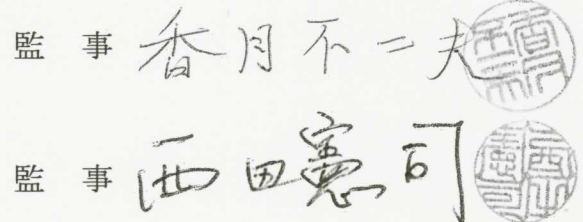 監事 香月不二夫
監事 西田憲司